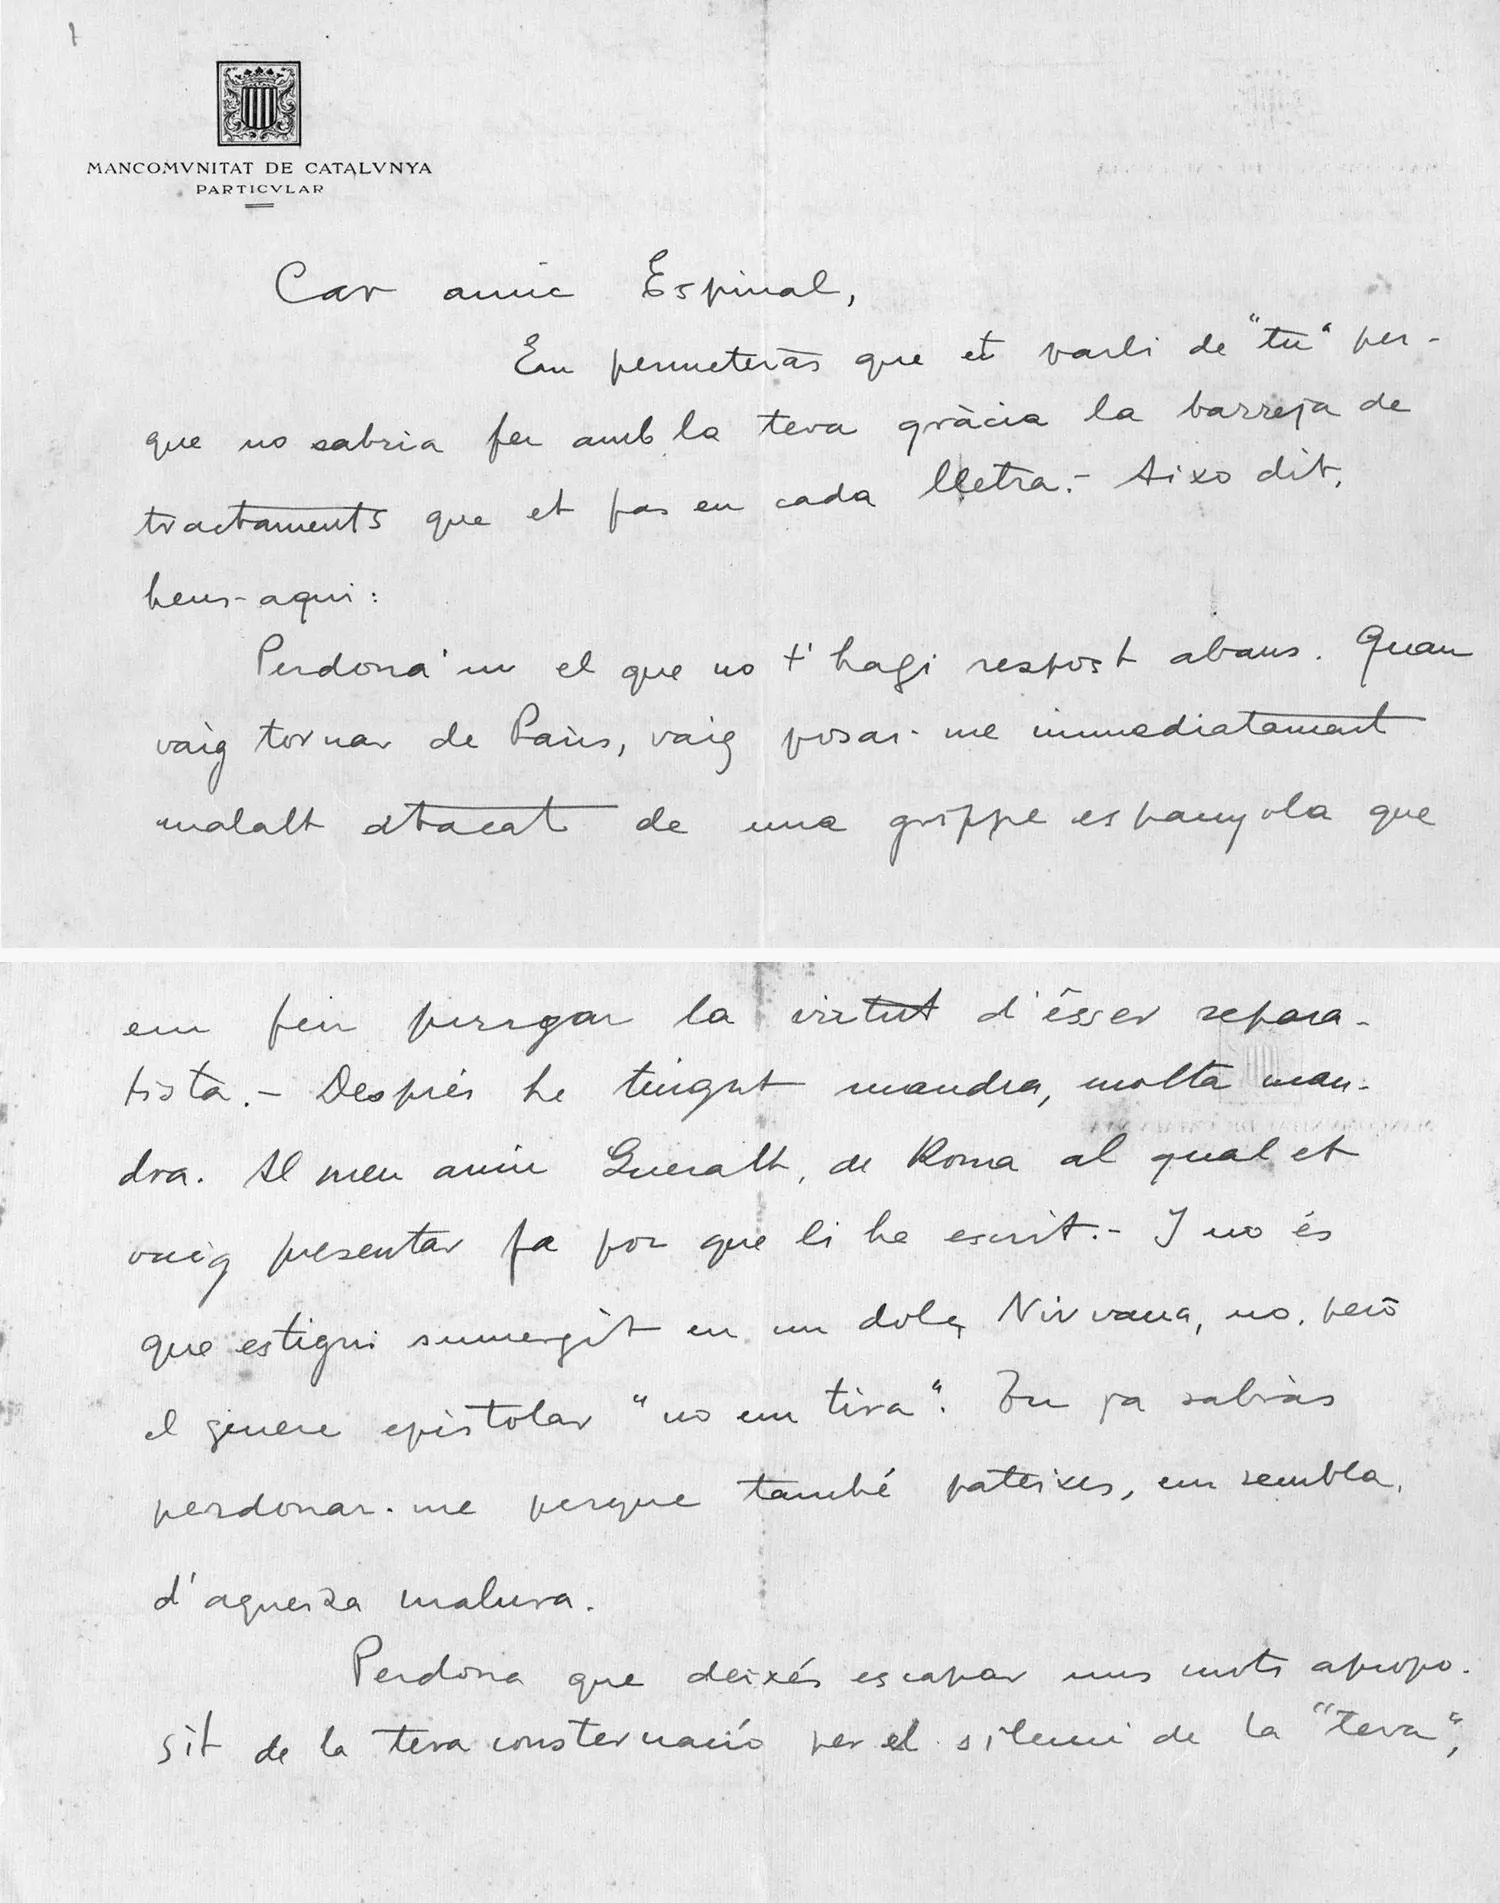 MANCOMVNITAT DE CATALVNYA
PARTICVLAR
Car amic Espinal,
Em permeteràs que et parli de "tu" per-
que no sabria fer amb la teva gràcia la barreja de
tractaments que et fas en cada lletra.- Aixo dit,
heus-aqui:
Perdona'm el que no t'hagi respost abans. Quan
vaig tornar de Paris, vaig posar-me immediatament
malalt atacat de una grippe espanyola que
em feu purgar la virtut d'ésser separa-
tista.- Després he tingut mandra, molta man-
dra. Al meu amic Gueralt, de Roma al qual et
vaig presentar fa poc que li he escrit.- I no és
que estigui sumergit en un dolç Nirvana, no, però
el genere epistolar "no em tira". Tu ja sabràs
perdonar-me perque també pateixes, em sembla,
d'aqueixa malura.
Perdona que deixés escapar uns mots apropo-
sit de la teva consternació per el silenci de la "teva",